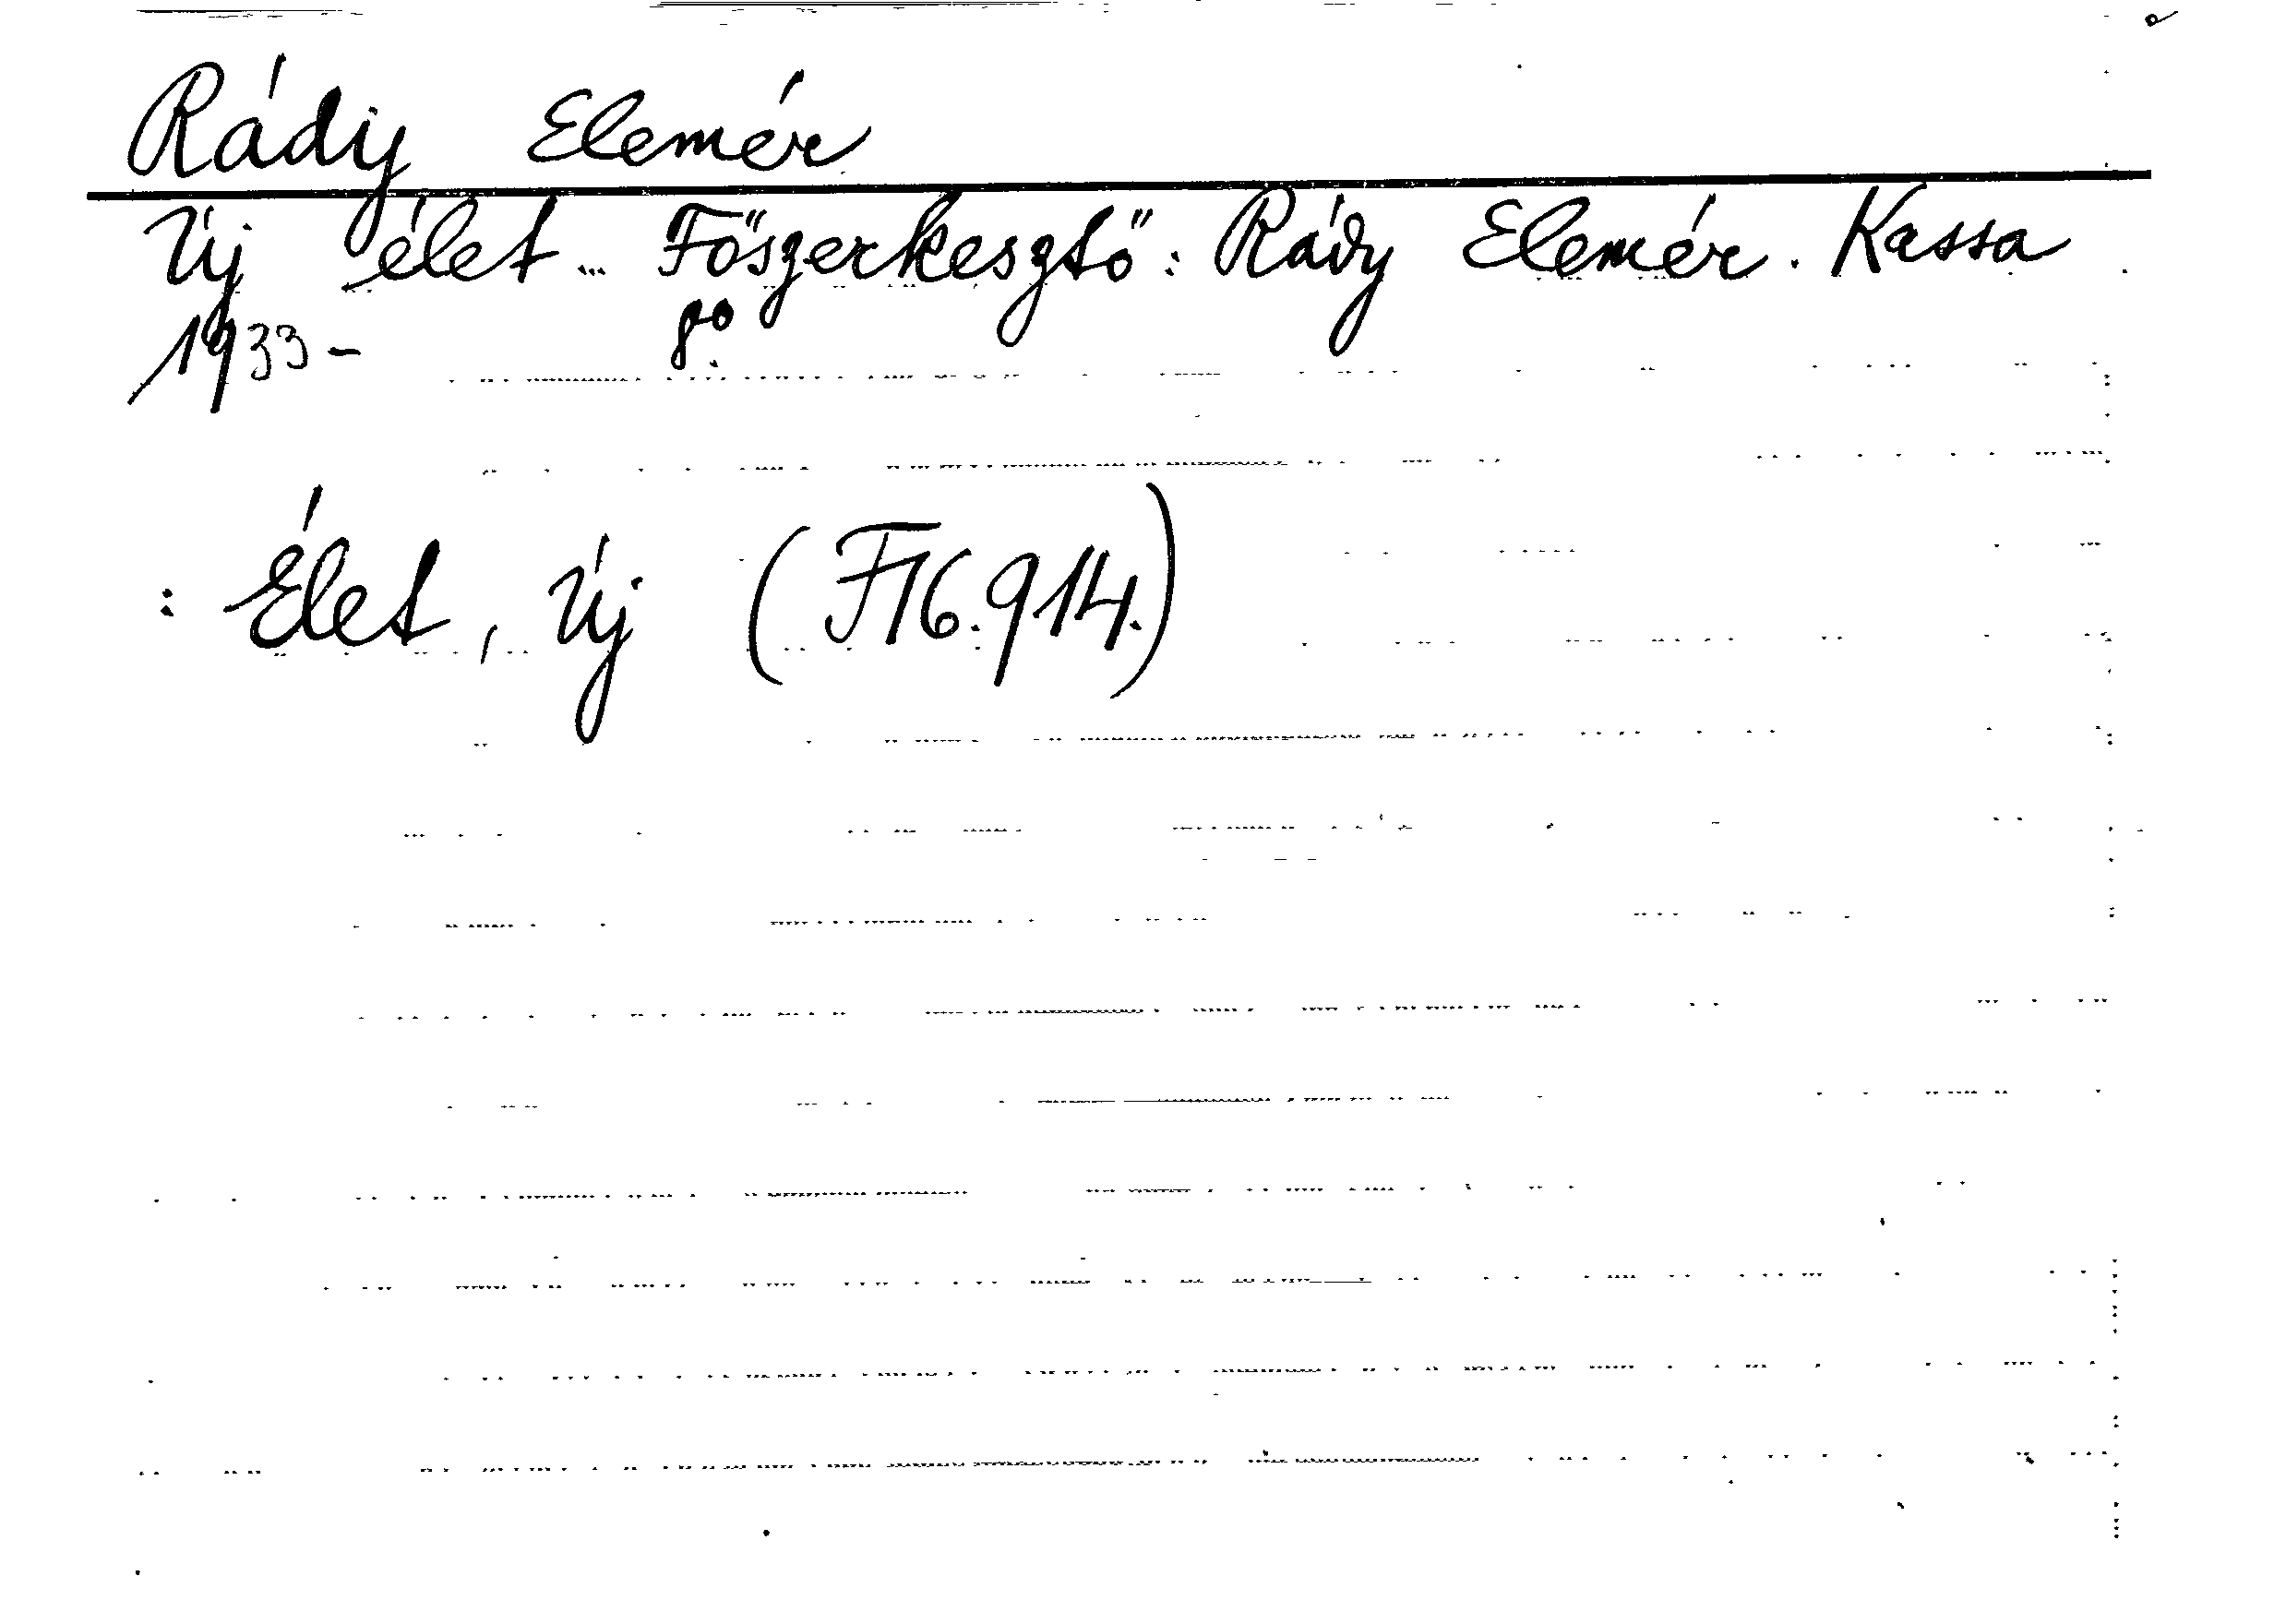 Rády Elemér
Új élet... Főszerkesztő: Rády Elemér. Kassa
1933- 8°.
: Élet, Új (F16.914.)